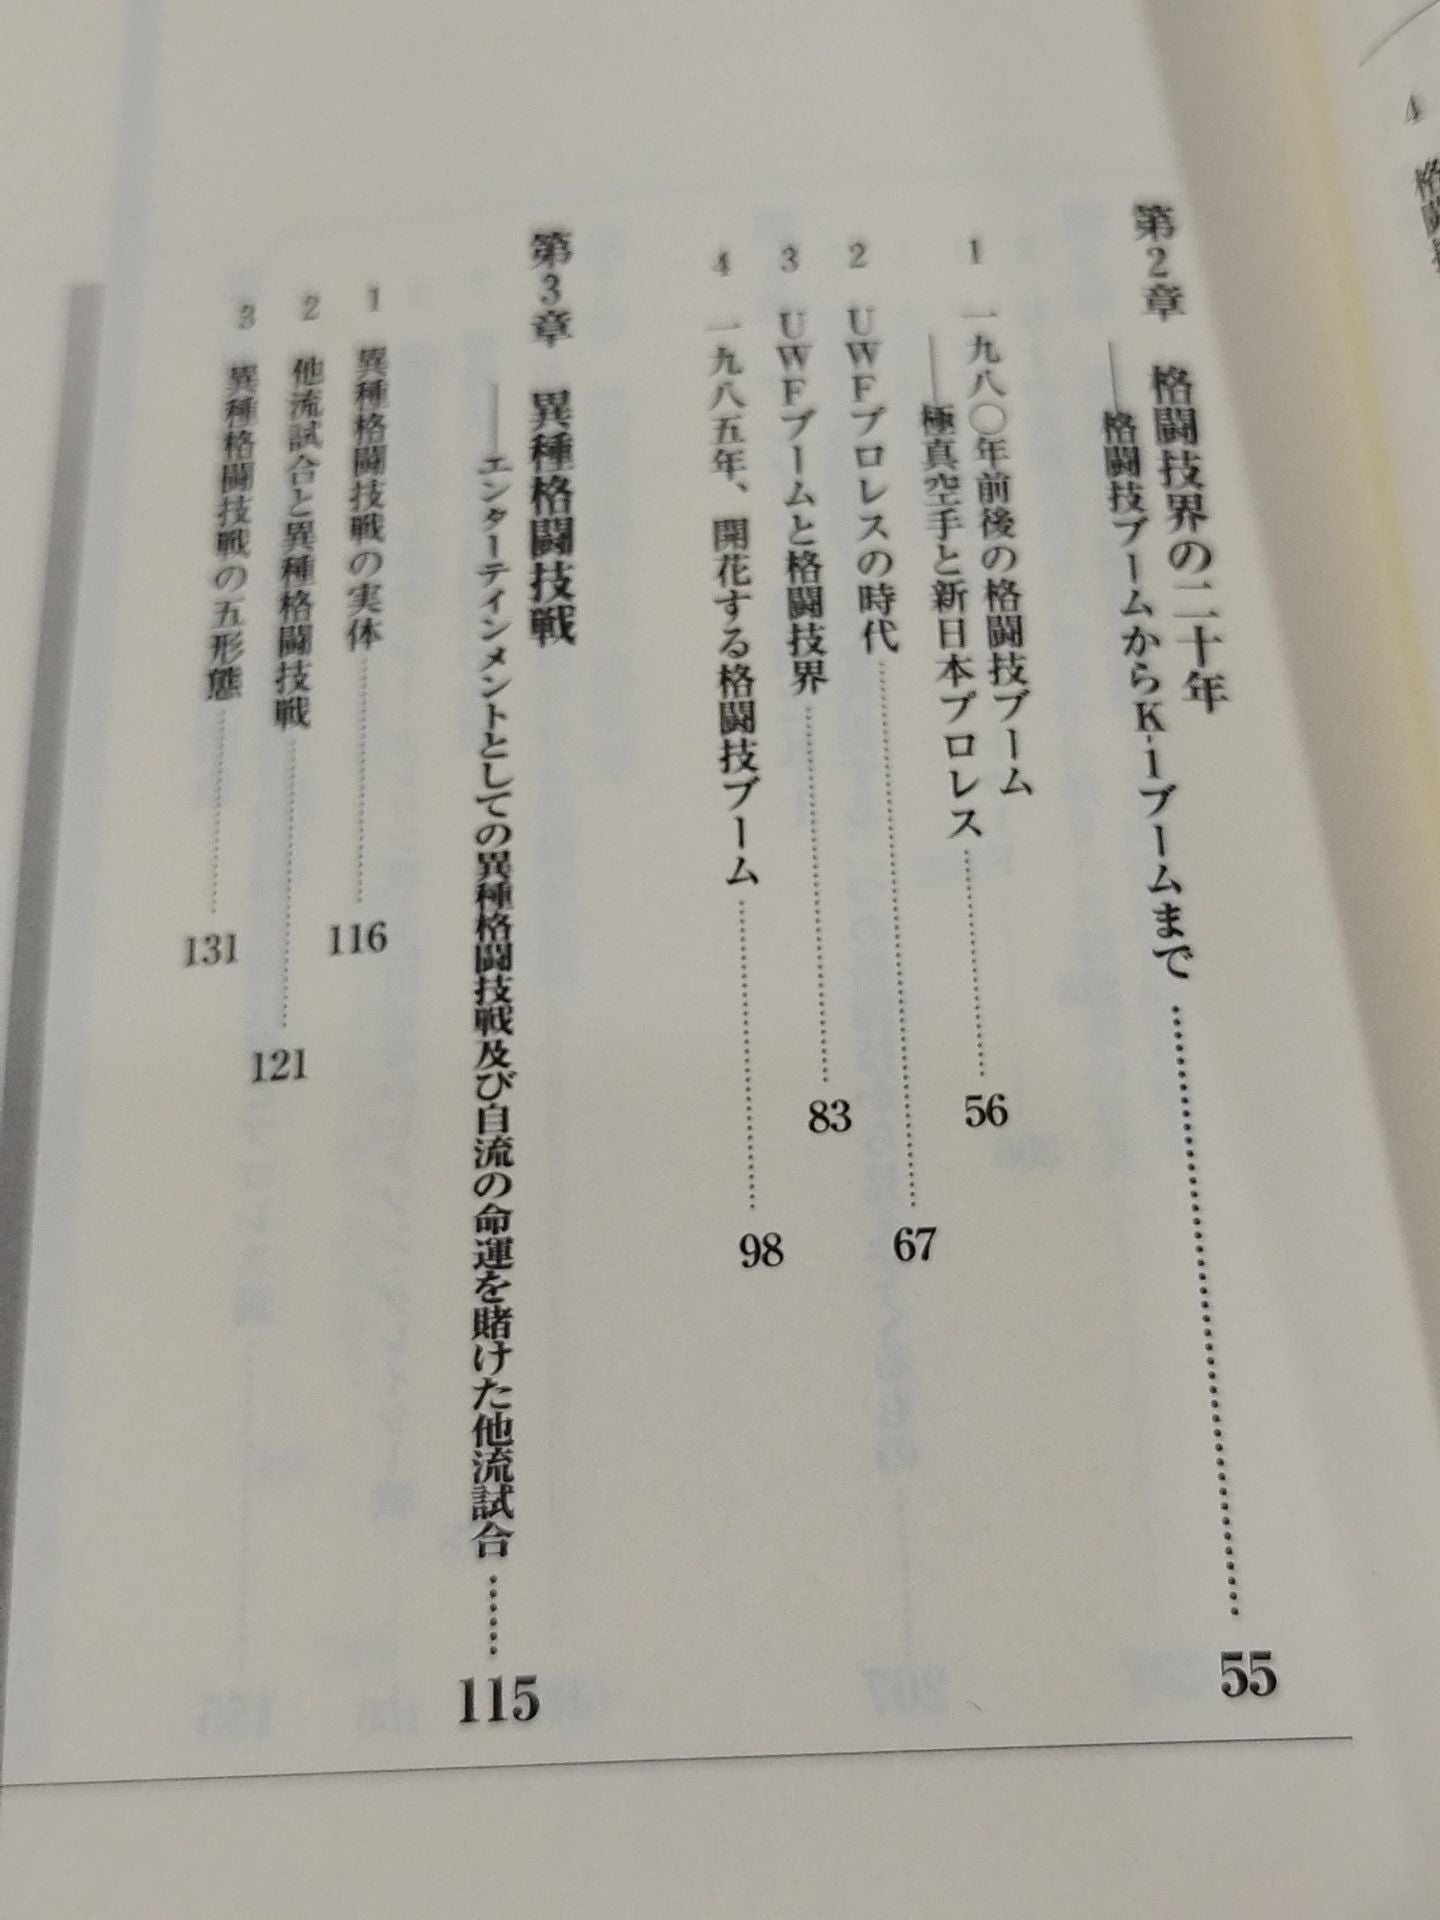 4 格闘技
第2章 格闘技界の二十年
――格闘技ブームからK-1ブームまで……………………55
1 一九八〇年前後の格闘技ブーム
――極真空手と新日本プロレス……………………56
2 UWFプロレスの時代……………………67
3 UWFブームと格闘技界……………………83
4 一九八五年、開花する格闘技ブーム……………………98
第3章 異種格闘技戦
――エンターティンメントとしての異種格闘技戦及び自流の命運を賭けた他流試合……115
1 異種格闘技戦の実体……………………116
2 他流試合と異種格闘技戦……………………121
3 異種格闘技戦の五形態……………………131